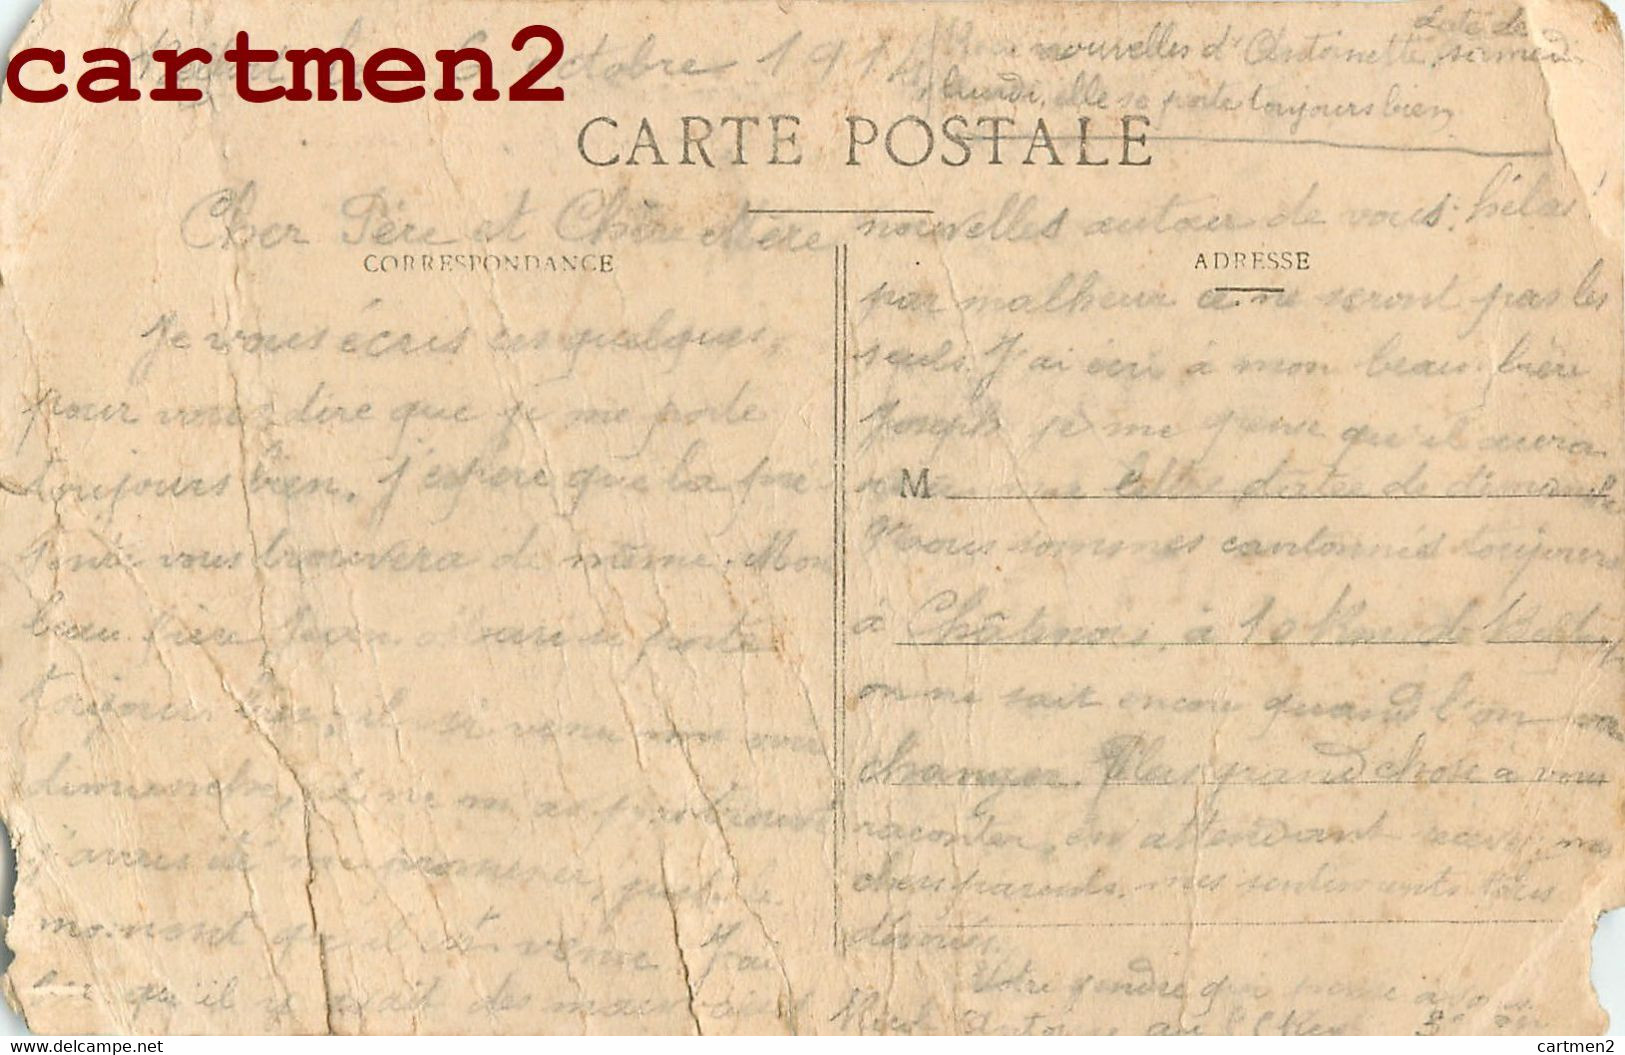 cartmen2
6 Octobre 1914
nouvelles d'Antoinette, date de samedi
lundi, elle se porte toujours bien
CARTE POSTALE
Cher Père et Chère Mère
CORRESPONDANCE
Je vous écris ces quelques
pour vous dire que je me porte
toujours bien. J'espère que la pré
sente vous trouvera de même. Mon
beau frère se porte
toujours bien, il venu me voir
dimanche, il ne m'a pas trouvé
j'avais été me promener, juste le
moment qu'il est venu. J'ai
qu'il y avait des mauvaises
nouvelles autour de vous: hélas!
ADRESSE
par malheur ce ne seront pas les
seuls. J'ai écri à mon beau frère
Joseph je me pense qu'il aura
M
une lettre datée de dimanche
Nous sommes cantonnés toujours
à Châtenois, à 10 Km de Belfort
on ne sait encore quand l'on va
changer. Plus grand chose à vous
raconter, en attendant recevez mes
chers parents, mes sentiments
dévoués.
Votre gendre qui pense à vous
Antoine au
www.delcampe.net
cartmen2